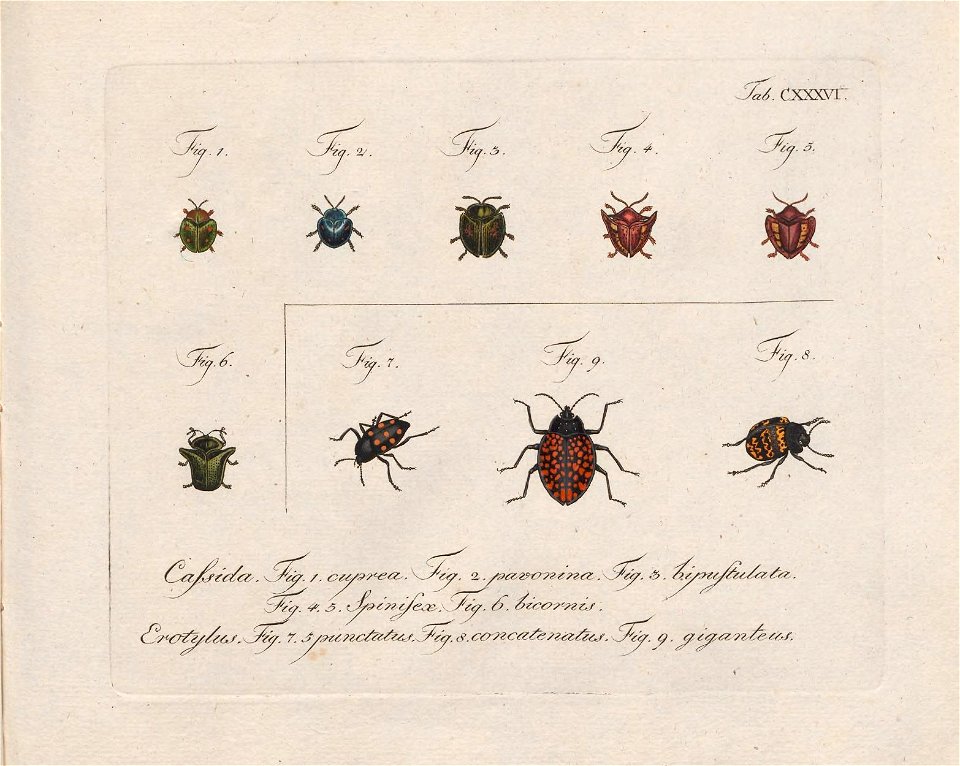 Tab. CXXXVI.
Fig. 1. Fig. 2. Fig. 3. Fig. 4. Fig. 5.
Fig. 6. Fig. 7. Fig. 9. Fig. 8.
Caſsida. Fig. 1. cuprea. Fig. 2. pavonina. Fig. 3. bipuſtulata.
Fig. 4. 5. Spinifex. Fig. 6. bicornis.
Erotylus. Fig. 7. 5 punctatus. Fig. 8. concatenatus. Fig. 9. giganteus.